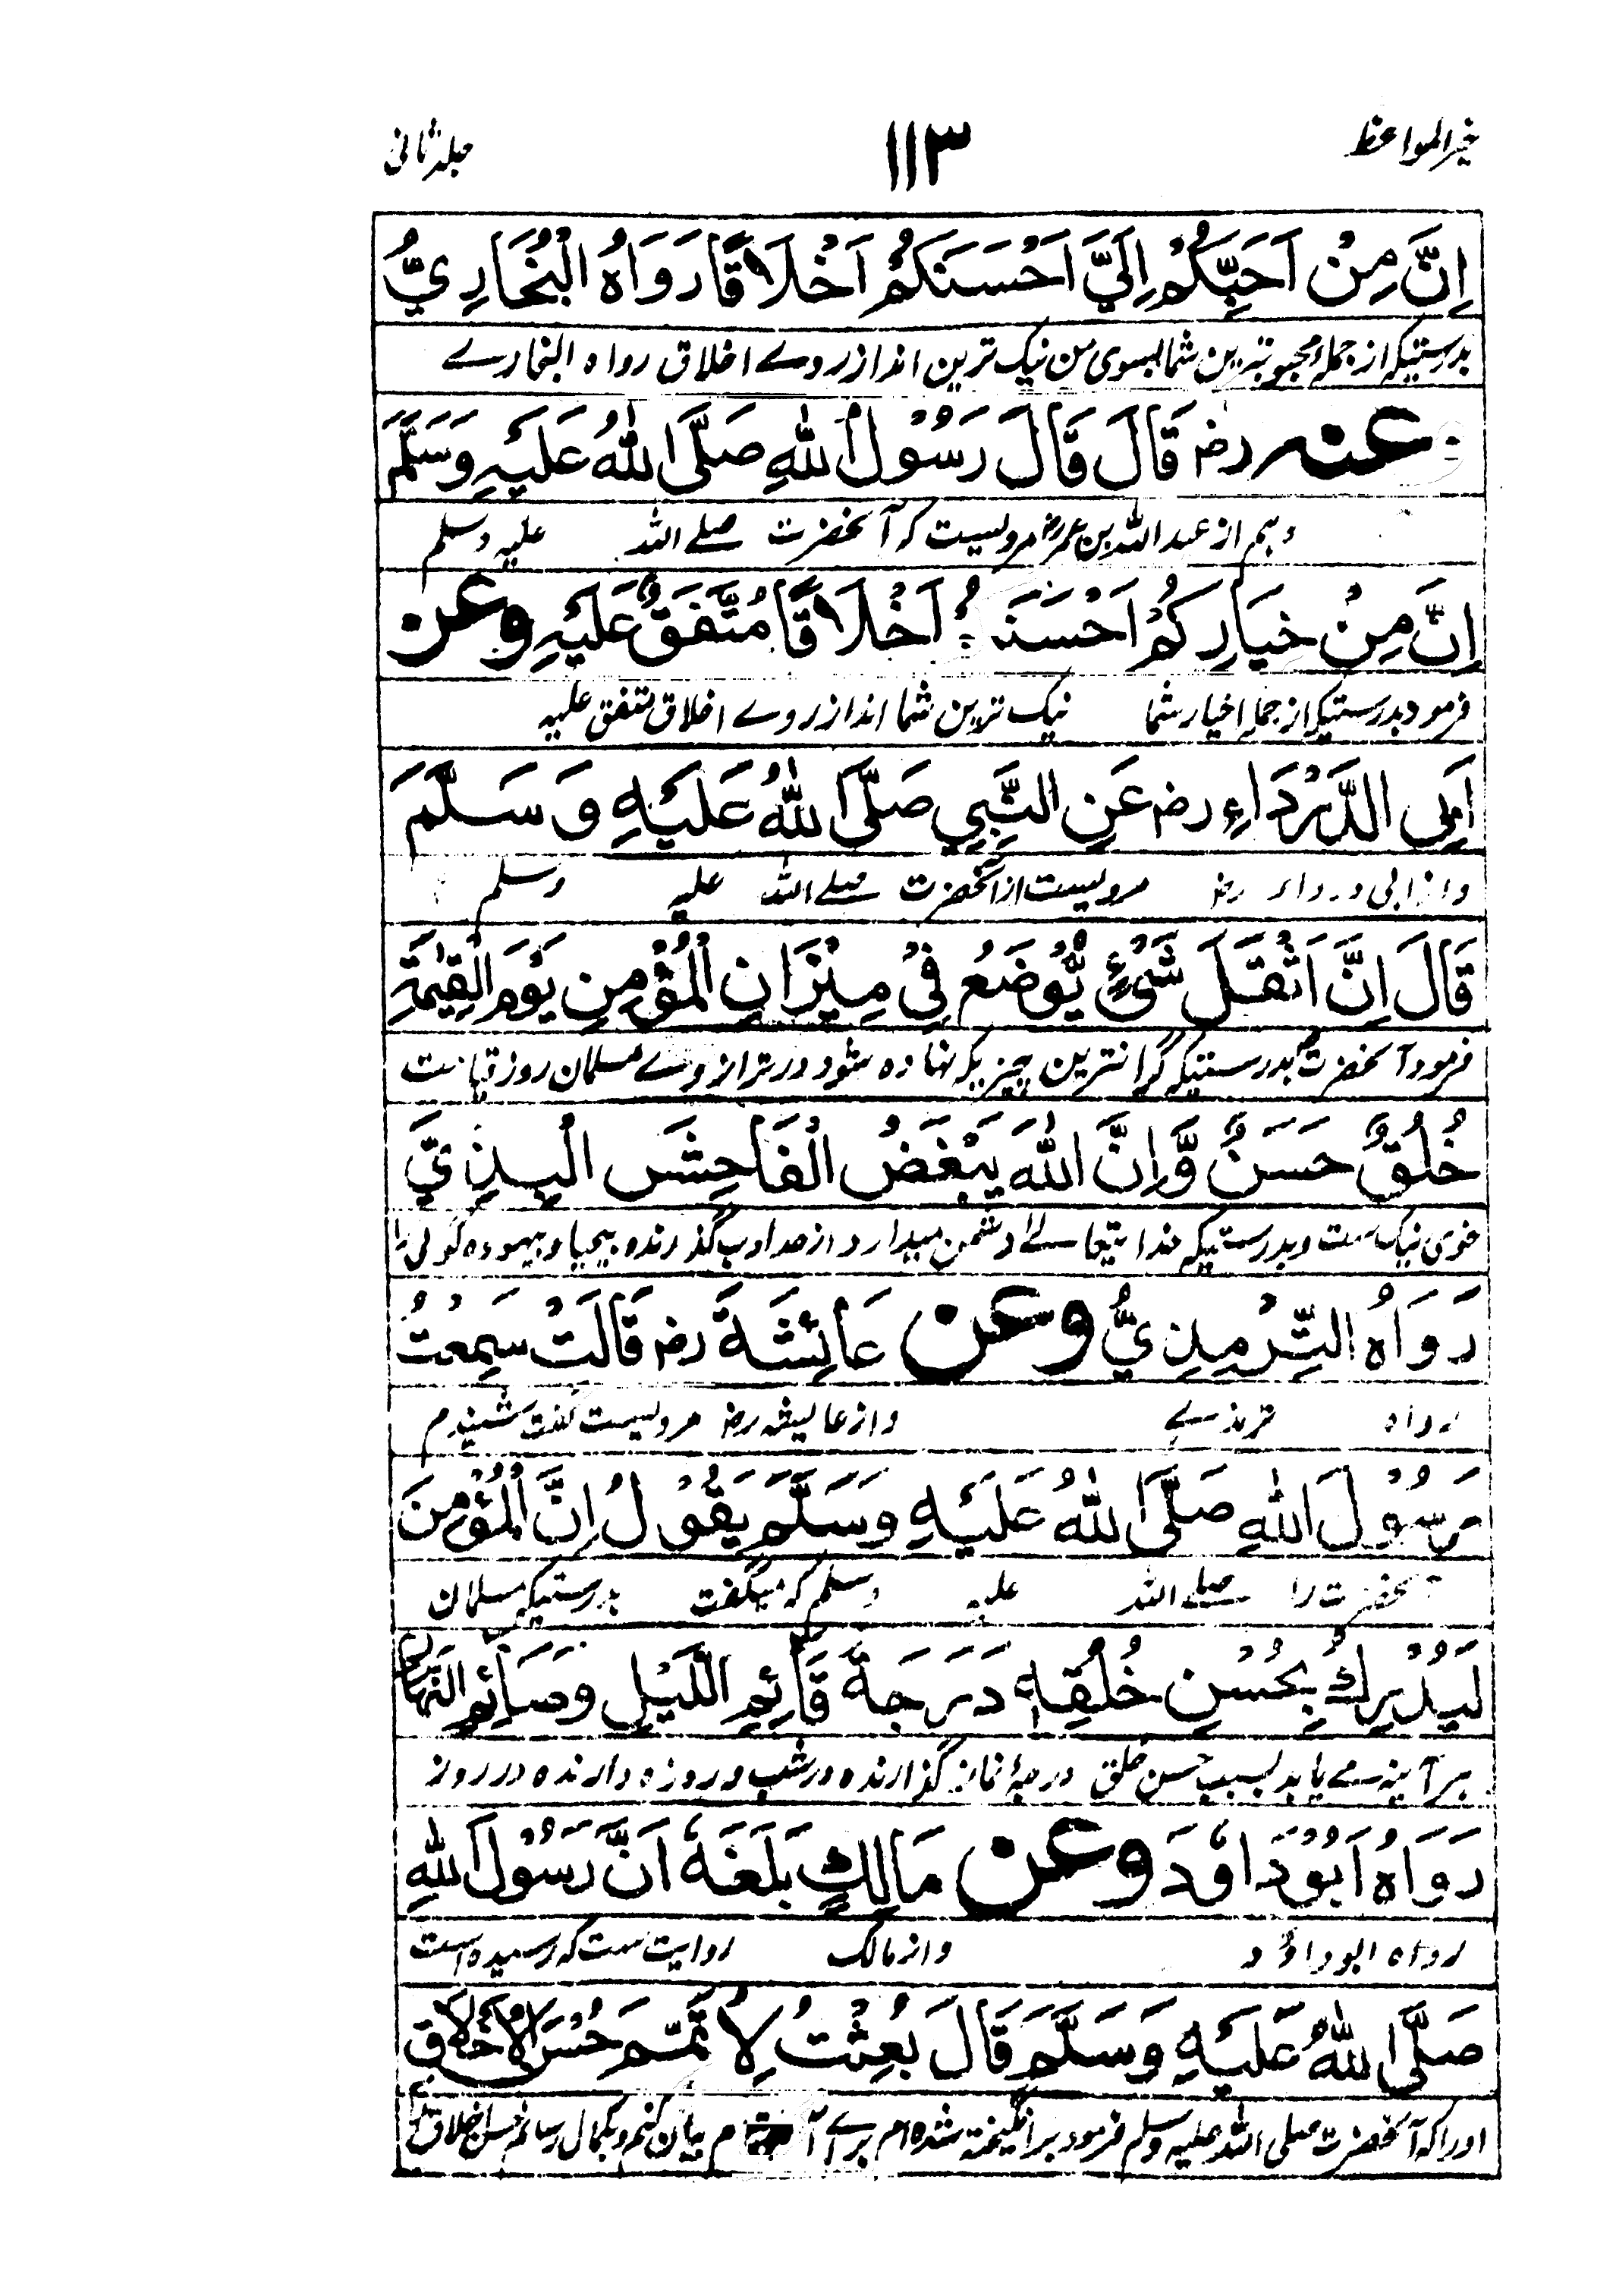 خیر المواعظ
۱۱۳
جلد ثانی
اِنَّ مِنْ اَحَبِّكُمْ اِلَيَّ اَحْسَنَكُمْ اَخْلَاقًا رَوَاهُ الْبُخَارِيُّ
بدرستیکه از جمله محبوبترین شما بسوی من نیک ترین اند از روے اخلاق رواه البخارے
وعنه رض قَالَ قَالَ رَسُوْلُ اللّٰهِ صَلَّى اللّٰهُ عَلَيْهِ وَسَلَّمَ
وہم از عبد الله بن عمر رض مرویست که آنحضرت صلے الله علیه وسلم
اِنَّ مِنْ خِيَارِكُمْ اَحْسَنَكُمْ اَخْلَاقًا مُتَّفَقٌ عَلَيْهِ وعن
فرمود بدرستیکه از جمله اخیار شما نیک ترین شما اند از روے اخلاق متفق علیه
اَبِي الدَّرْدَاءِ رض عَنِ النَّبِيِّ صَلَّى اللّٰهُ عَلَيْهِ وَ سَلَّمَ
و از ابی درداء رض مرویست از آنحضرت صلے الله علیه وسلم
قَالَ اِنَّ اَثْقَلَ شَيْءٍ يُّوْضَعُ فِيْ مِيْزَانِ الْمُؤْمِنِ يَوْمَ الْقِيٰمَةِ
فرمود آنحضرت بدرستیکه گرانترین چیزیکه نهاده شود در ترازوے مسلمان روز قیامت
خُلُقٌ حَسَنٌ وَّاِنَّ اللّٰهَ يَبْغَضُ الْفَاحِشَ الْبَذِيَّ
خوی نیک ست و بدرستیکه خدا یتعالے دشمن میدارد از حد ادب گذرنده و بیحیا و بیهوده گوئی را
رَوَاهُ التِّرْمِذِيُّ وعن عَائِشَةَ رض قَالَتْ سَمِعْتُ
رواه ترمذے و از عایشه رض مرویست گفت شنیدم
رَسُوْلَ اللّٰهِ صَلَّى اللّٰهُ عَلَيْهِ وَسَلَّمَ يَقُوْلُ اِنَّ الْمُؤْمِنَ
آنحضرت را صلے الله علیه وسلم که میگفت بدرستیکه مسلمان
لَيُدْرِكُ بِحُسْنِ خُلُقِهٖ دَرَجَةَ قَائِمِ اللَّيْلِ وَصَائِمِ النَّهَارِ
ہر آینه مے یابد بسبب حسن خلق درجۂ نماز گذارنده در شب و روزه دارنده در روز
رَوَاهُ اَبُوْ دَاوٗدَ وعن مَالِكٍ بَلَغَهٗ اَنَّ رَسُوْلَ اللّٰهِ
رواه ابو داؤد و از مالک روایت ست که رسیده است
صَلَّى اللّٰهُ عَلَيْهِ وَسَلَّمَ قَالَ بُعِثْتُ لِاُتَمِّمَ حُسْنَ الْاَخْلَاقِ
اورا که آنحضرت صلی الله علیه وسلم فرمود برانگیخته شده ام براے آنکه تمام بیان کنم و بکمال رسانم حسن اخلاق را